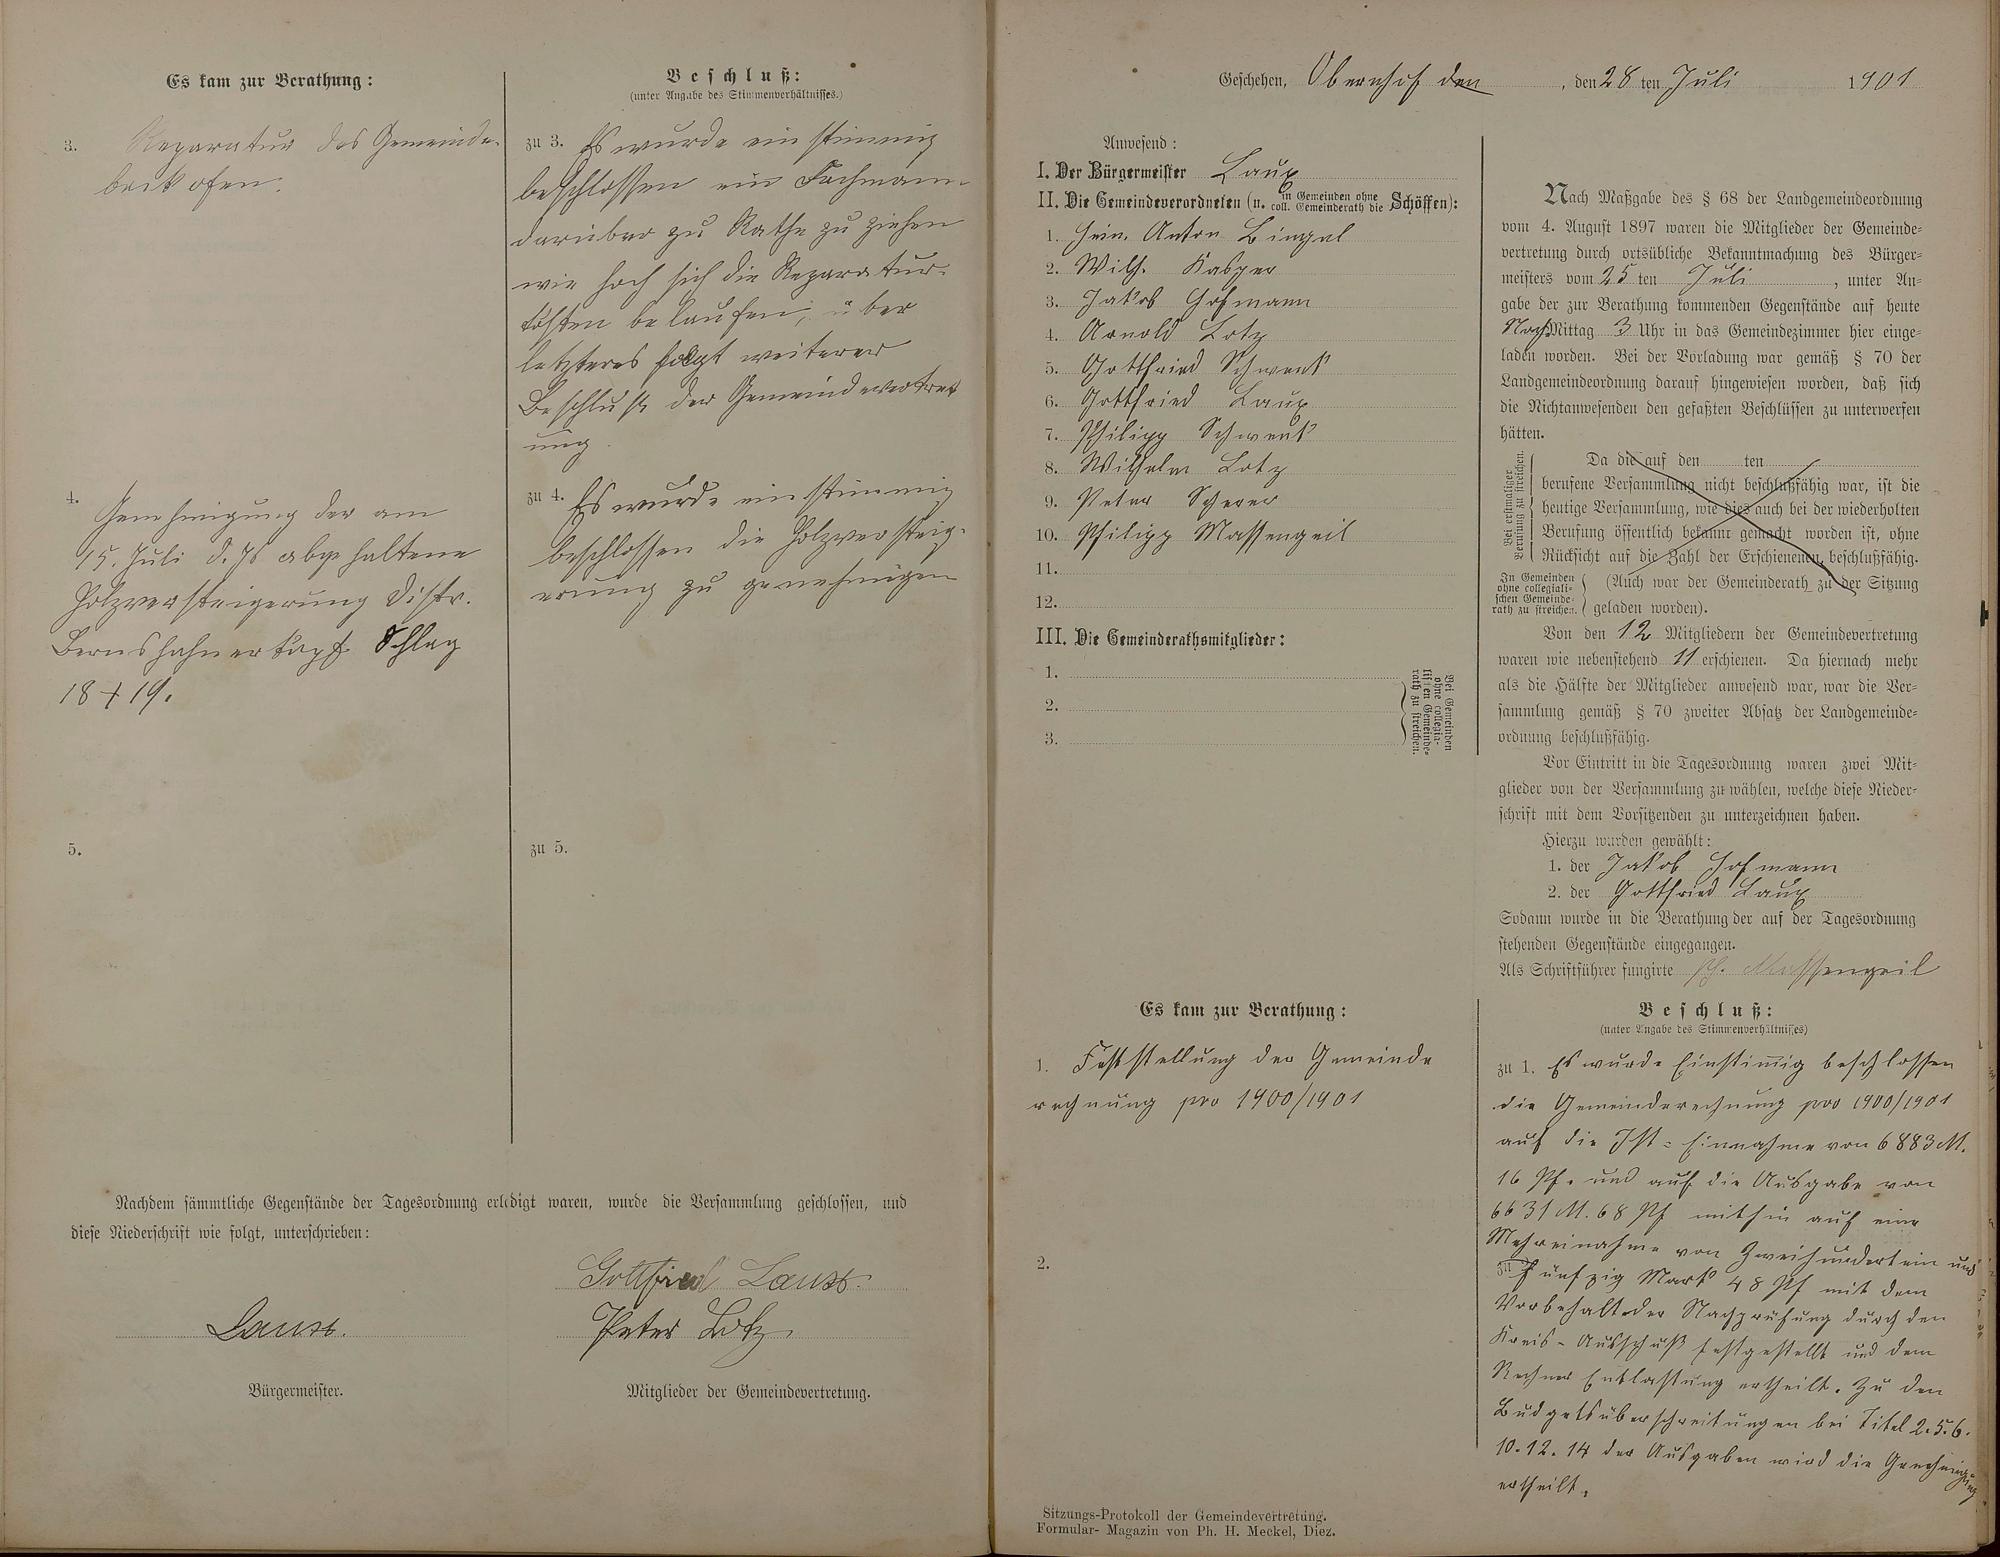 Es kam zur Berathung:
3. Reparatur des Gemeinde-
back ofen.
4. Genehmigung der am
15. Juli d. Js abgehaltene
Holzversteigerung Distr.
Bernshahnerkopf Schlag
18 + 19.
5.
Beschluß:
(unter Angabe des Stimmenverhältnisses.)
zu 3. Es wurde einstimmig
beschlossen ein Fachmann
darüber zu Rathe zu ziehen
wie hoch sich die Reparatur-
kosten belaufen, über
letzteres folgt weiterer
Beschluß der Gemeindevertret
ung.
zu 4. Es wurde einstimmig
beschlossen die Holzversteig-
erung zu genehmigen
zu 5.
Nachdem sämmtliche Gegenstände der Tagesordnung erledigt waren, wurde die Versammlung geschlossen, und
diese Niederschrift wie folgt, unterschrieben:
Gottfried Laux.
Laux.
Peter Lotz.
Bürgermeister.
Mitglieder der Gemeindevertretung.
Geschehen, Obernhof den , den 28 ten Juli 1901
Anwesend:
I. Der Bürgermeister Laux
II. Die Gemeindeverordneten (u. in Gemeinden ohne coll. Gemeinderath die Schöffen):
1. Hein. Anton Bingel
2. Wilh. Kasper
3. Jakob Hofmann
4. Arnold Lotz
5. Gottfried Schwenk
6. Gottfried Laux
7. Philipp Schwenk
8. Wilhelm Lotz
9. Peter Scherer
10. Philipp Massengeil
11.
12.
III. Die Gemeinderathsmitglieder:
1.
2.
3.
Bei Gemeinden
ohne collegia-
lischen Gemeinde-
rath zu streichen.
Nach Maßgabe des § 68 der Landgemeindeordnung
vom 4. August 1897 waren die Mitglieder der Gemeinde-
vertretung durch ortsübliche Bekanntmachung des Bürger-
meisters vom 25 ten Juli , unter An-
gabe der zur Berathung kommenden Gegenstände auf heute
NachMittag 3 Uhr in das Gemeindezimmer hier einge-
laden worden. Bei der Vorladung war gemäß § 70 der
Landgemeindeordnung darauf hingewiesen worden, daß sich
die Nichtanwesenden den gefaßten Beschlüssen zu unterwerfen
hätten.
Bei erstmaliger
Berufung zu streichen.
Da die auf den ten
berufene Versammlung nicht beschlußfähig war, ist die
heutige Versammlung, wie dies auch bei der wiederholten
Berufung öffentlich bekannt gemacht worden ist, ohne
Rücksicht auf die Zahl der Erschienenen, beschlußfähig.
In Gemeinden
ohne collegiali-
schen Gemeinde-
rath zu streichen.
(Auch war der Gemeinderath zu der Sitzung
geladen worden).
Von den 12 Mitgliedern der Gemeindevertretung
waren wie nebenstehend 11 erschienen. Da hiernach mehr
als die Hälfte der Mitglieder anwesend war, war die Ver-
sammlung gemäß § 70 zweiter Absatz der Landgemeinde-
ordnung beschlußfähig.
Vor Eintritt in die Tagesordnung waren zwei Mit-
glieder von der Versammlung zu wählen, welche diese Nieder-
schrift mit dem Vorsitzenden zu unterzeichnen haben.
Hierzu wurden gewählt:
1. der Jakob Hofmann
2. der Gottfried Laux
Sodann wurde in die Berathung der auf der Tagesordnung
stehenden Gegenstände eingegangen.
Als Schriftführer fungirte Ph. Massengeil
Es kam zur Berathung:
1. Feststellung der Gemeinde
rechnung pro 1900/1901
2.
Beschluß:
(unter Angabe des Stimmenverhältnisses)
zu 1. Es wurde Einstim̄ig beschlossen
die Gemeinderechnung pro 1900/1901
auf die Ist-Einnahme von 6883 M.
16 Pf. und auf die Ausgabe von
6631 M. 68 Pf mithin auf eine
Mehreinahme von Zweihundertein und
zu fünfzig Mark 48 Pf mit dem
Vorbehalt der Nachprüfung durch den
Kreis-Ausschuß festgestellt und dem
Rechner Entlastung ertheilt. Zu den
Budgetsüberschreitungen bei Titel 2.5.6.
10.12.14 der Ausgaben wird die Genehmigung
ertheilt.
Sitzungs-Protokoll der Gemeindevertretung.
Formular-Magazin von Ph. H. Meckel, Diez.